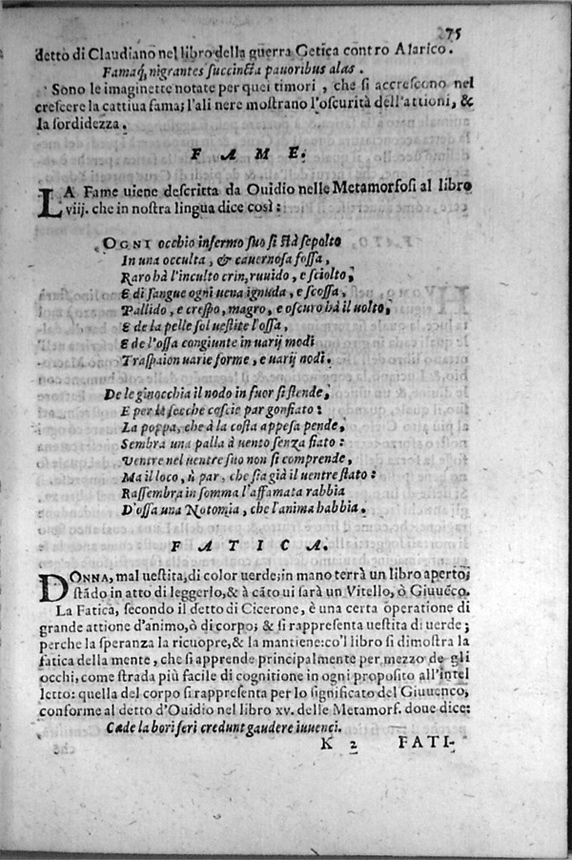 75
detto di Claudiano nel libro della guerra Getica contro Alarico.
Famaq́, nigrantes succincta pauoribus alas.
Sono le imaginette notate per quei timori, che si accrescono nel
crescere la cattiua fama; l'ali nere mostrano l'oscurità dell'attioni, &
la sordidezza.
F A M E.
LA Fame uiene descritta da Ouidio nelle Metamorfosi al libro
viij. che in nostra lingua dice così:
OGNI occhio infermo suo si stà sepolto
In una occulta, & cauernosa fossa,
Raro hà l'inculto crin, ruuido, e sciolto,
E di sangue ogni uena ignuda, e scossa,
Pallido, e crespo, magro, e oscuro hà il uolto,
E de la pelle sol uestite l'ossa,
E de l'ossa congiunte in uarij modi
Traspaion uarie forme, e uarij nodi.
De le ginocchia il nodo in fuor si stende,
E per le secche coscie par gonfiato:
La poppa, che à la costa appesa pende,
Sembra una palla à uento senza fiato:
Ventre nel uentre suo non si comprende,
Ma il loco, ù par, che sia già il uentre stato:
Rassembra in somma l'affamata rabbia
D'ossa una Notomia, che l'anima habbia.
F A T I C A.
DONNA, mal uestita, di color uerde; in mano terrà un libro aperto,
stādo in atto di leggerlo, & à cāto ui sarà un Vitello, ò Giuuēco.
La Fatica, secondo il detto di Cicerone, è una certa operatione di
grande attione d'animo, ò di corpo; & si rappresenta uestita di uerde;
perche la speranza la ricuopre, & la mantiene: co'l libro si dimostra la
fatica della mente, che si apprende principalmente per mezzo de gli
occhi, come strada più facile di cognitione in ogni proposito all'intel
letto: quella del corpo si rappresenta per lo significato del Giuuenco,
conforme al detto d'Ouidio nel libro xv. delle Metamorf. doue dice:
Cæde labori feri credunt gaudere iuuenci.
K 2 FATI-